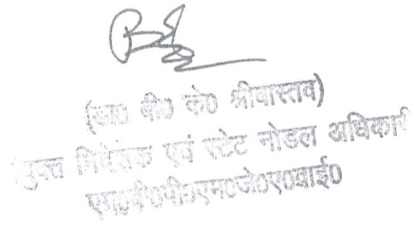 (डा० बी० के० श्रीवास्तव)
निदेशक एवं स्टेट नोडल अधिकारी
एम०वी०पी०एम०जे०ए०वाई०